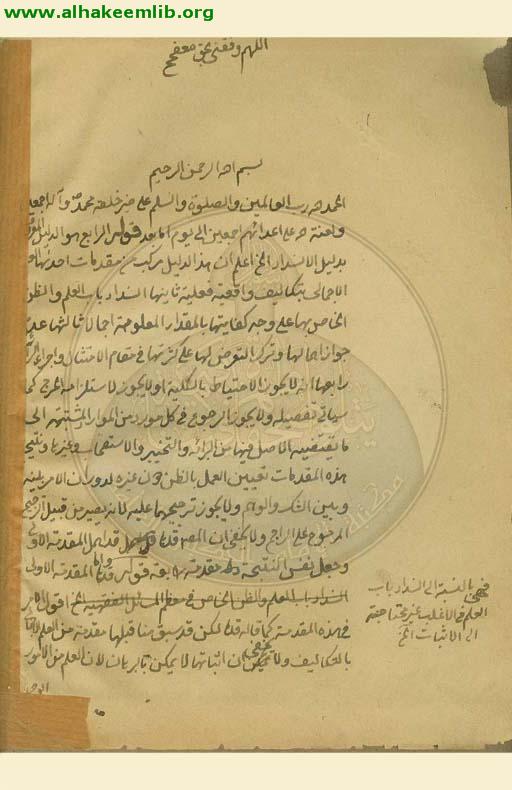 www.alhakeemlib.org
اللهم وفقني بحق
بسم الله الرحمن الرحيم
الحمد لله رب العالمين والصلوة والسلم على خير خلقه محمد وآله اجمعين
ولعنة الله على اعدائهم اجمعين الى يوم اما بعد قوله الرابع هو الدليل المعروف
بدليل الانسداد الخ اعلم ان هذا الدليل مركب من مقدمات احدها العلم
الاجمالى بتكاليف واقعية فعلية ثانيها انسداد باب العلم والظن
الخاص بها على وجه كفايتها بالمقدار المعلومة اجمالا ثالثها عدم
جواز اهمالها وترك التعرض لها على كثرتها في مقام الامتثال واجراء
رابعها انه لا يجوز الاحتياط بالكلية او لا يجوز لاستلزامه الحرج كما
سياتى تفصيله ولا يجوز الرجوع في كل مورد من الموارد المشتبهه الى
ما يقتضيه الاصل فيها من البرائه والتخيير والاستصحاب وغيرها ونتيجة
هذه المقدمات تعيين العمل بالظن دون غيره لدوران الامر بينه
وبين الشك والوهم ولا يجوز ترجيحهما عليه لانه يصير من قبيل ترجيح
المرجوح على الراجح ولا يخفى ان المص قده جعل المقدمة الاولى
وجعل نفس النتيجة مقدمة رابعة قوله قده واما المقدمة الاولى
انسداد باب العلم والظن الخاص في معظم المسائل الفقهية الخ اقول الامر
في هذه المقدمة كما قاله قده لكن قد سبق منا قبلها مقدمة من العلم الاجمالى
بالتكاليف ولا يخفى ان اثباتها لا يمكن بالبرهان لان العلم من الامور
فهى بالنسبة الى انسداد باب
العلم في الاغلب غير محتاجة
الى الاثبات الخ